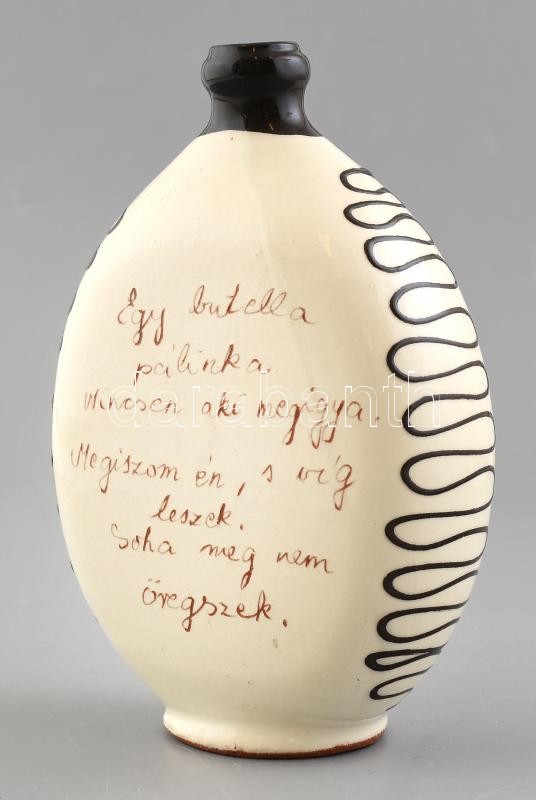 Egy butella
pálinka.
Nincsen aki megigya.
darabanth
Megiszom én, s víg
leszek.
Soha meg nem
öregszek.